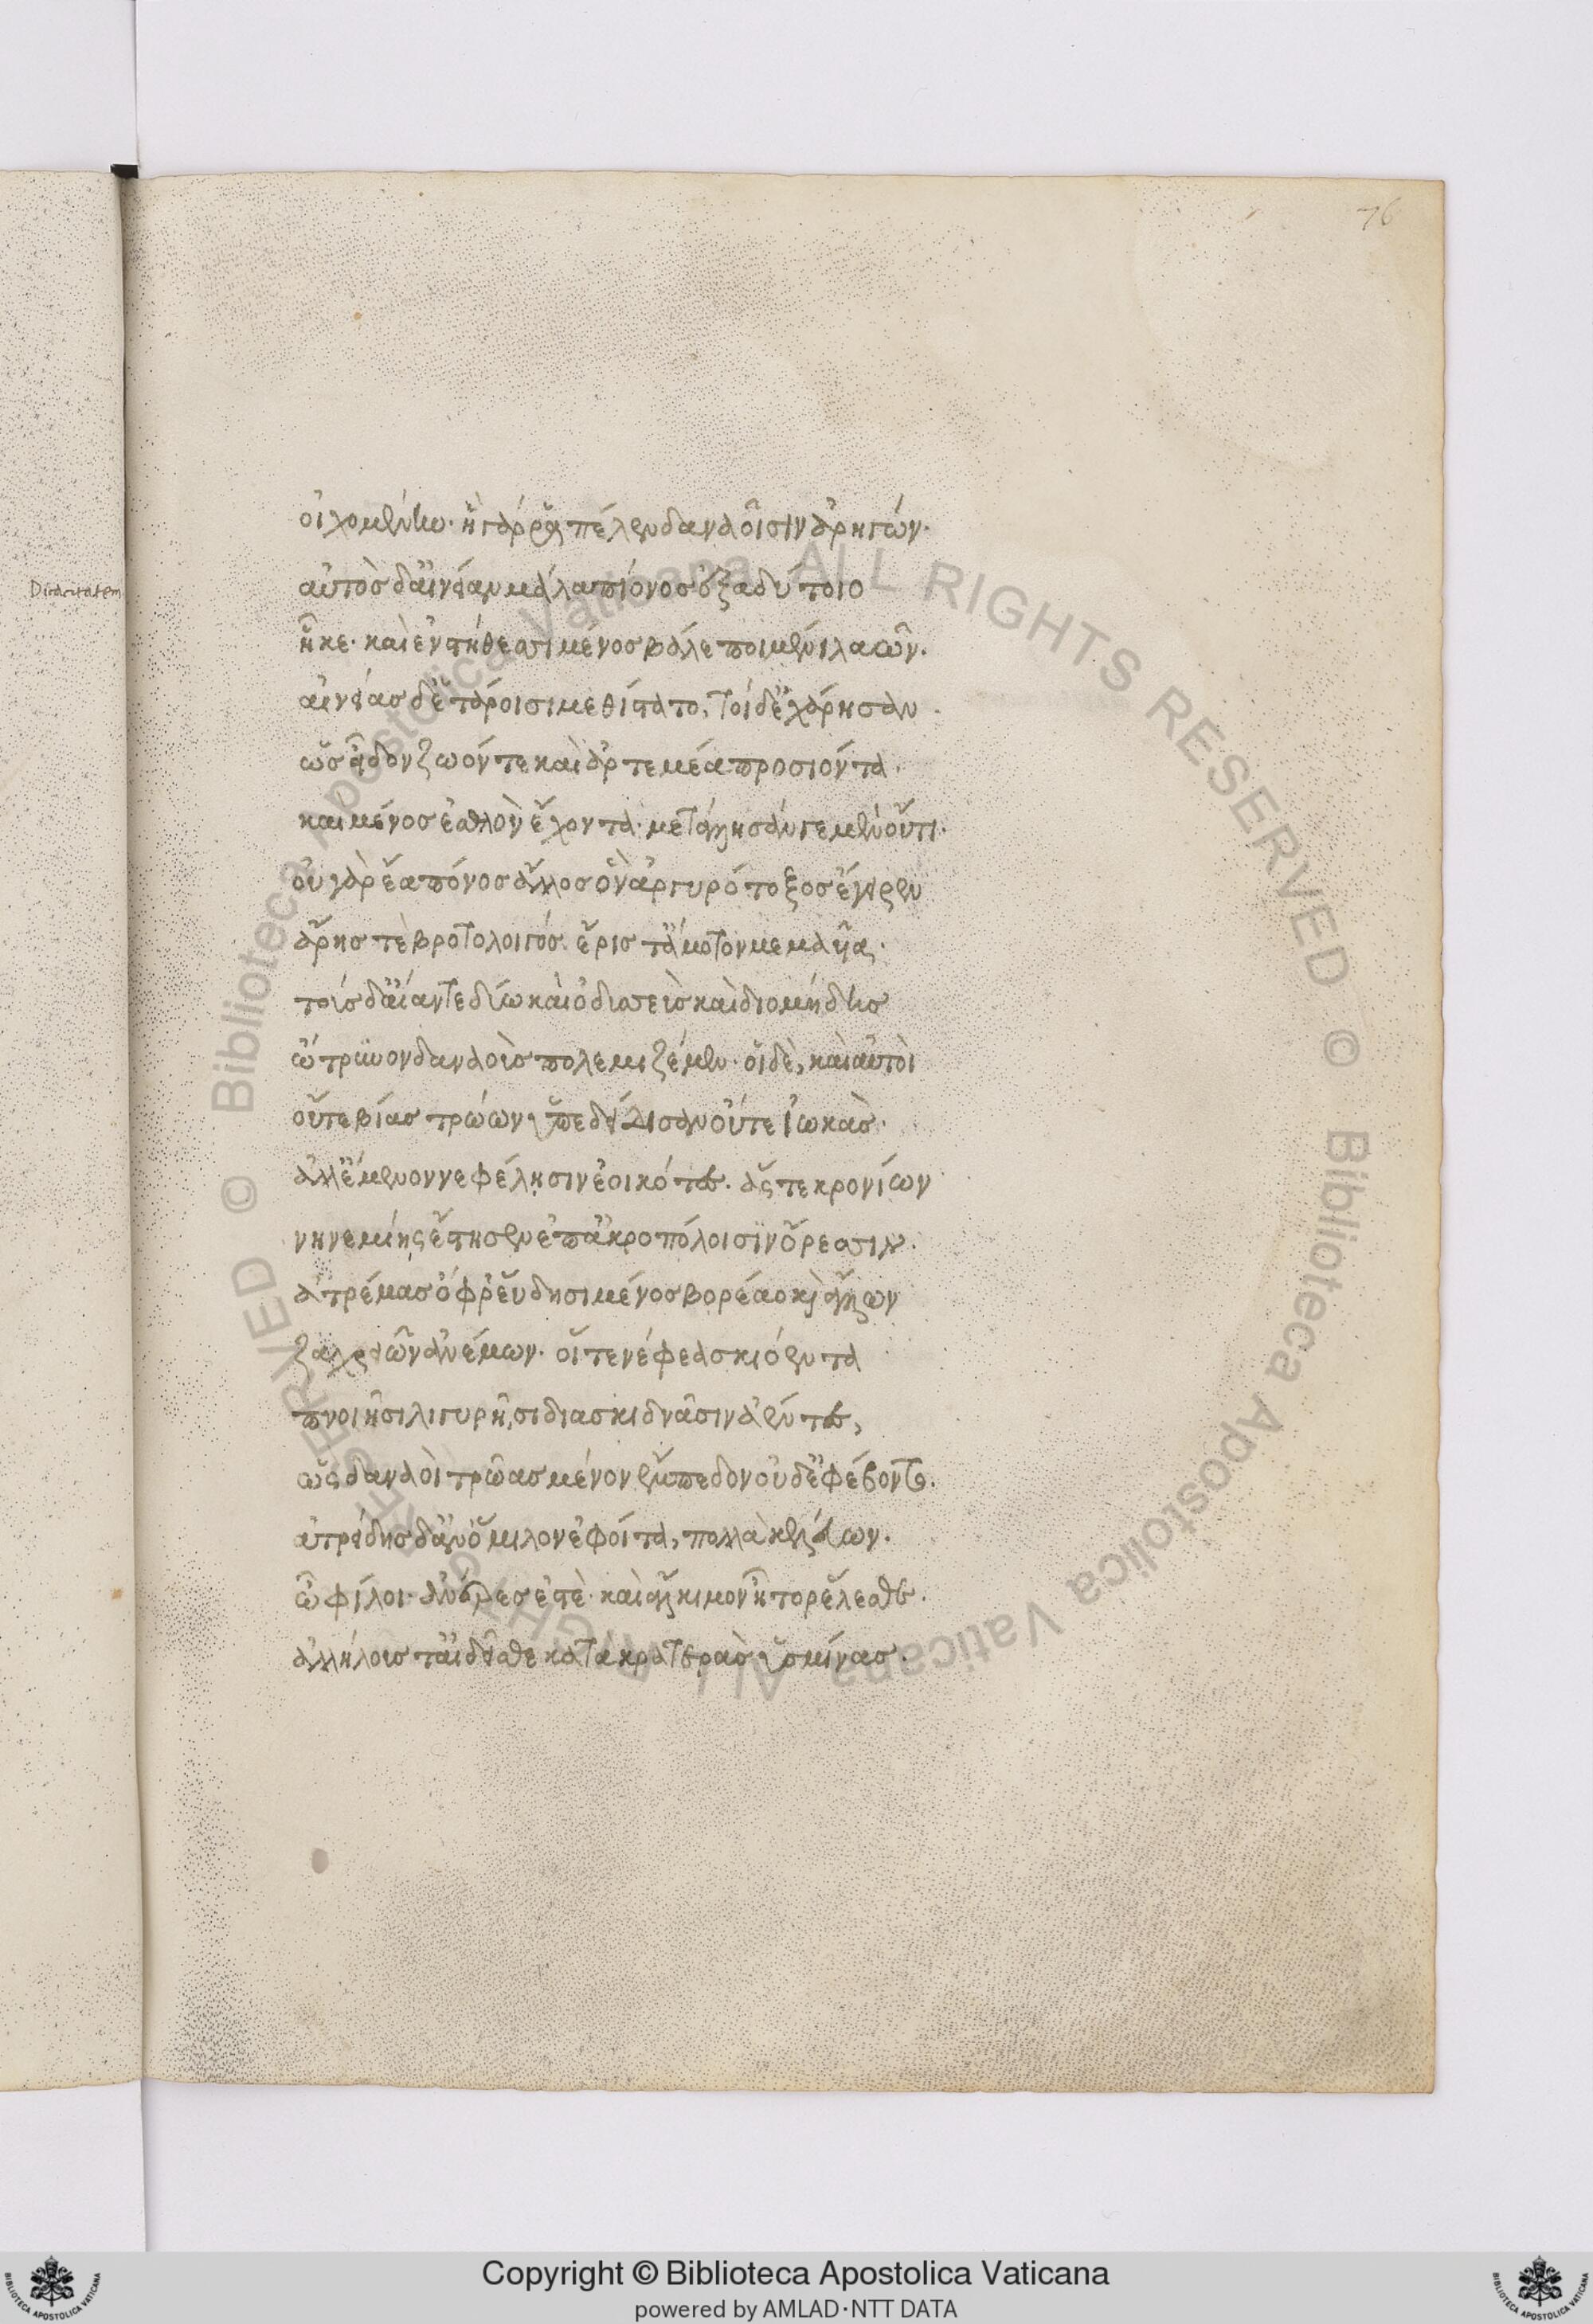 76
Dicacitatem
οἰχομένην· ἣ γάρ ῥα πέλεν δαναοῖσιν ἀρηγών·
αὐτὸς δ' αἰνείαν μάλα πίονος ἐξ ἀδύτοιο
ἧκε· καὶ ἐν στήθεσσι μένος βάλε ποιμένι λαῶν.
αἰνείας δ' ἑτάροισι μεθίστατο, τοὶ δ' ἐχάρησαν
ὡς εἶδον ζωόν τε καὶ ἀρτεμέα προσιόντα.
καὶ μένος ἐσθλὸν ἔχοντα· μετάλλησάν γε μὲν οὔτι·
οὐ γὰρ ἔα πόνος ἄλλος ὃν ἀργυρότοξος ἔγειρεν
ἄρης τὲ βροτολοιγός. ἔρις τ' ἄμοτον μεμαυῖα·
τοὺς δ' αἴαντε δύω καὶ ὀδυσσεὺς καὶ διομήδης
ὤτρυνον δαναοὺς πολεμιζέμεν· οἳ δὲ, καὶ αὐτοὶ
οὔτε βίας τρώων ὑπεδείδισαν οὔτε ἰωκάς·
ἀλλ' ἔμενον νεφέλησιν ἐοικότες. ἅς τε κρονίων
νηνεμίης ἔστησεν ἐπ' ἀκροπόλοισιν ὄρεσσιν·
ἀτρέμας ὄφρ' εὕδησι μένος βορέαο καὶ ἄλλων
ζαχρειῶν ἀνέμων· οἵ τε νέφεα σκιόεντα
πνοιῆσι λιγυρῆσι διασκιδνᾶσιν ἀέντες,
ὣς δαναοὶ τρῶας μένον ἔμπεδον οὐδ' ἐφέβοντο.
ἀτρείδης δ' ἀν' ὅμιλον ἐφοίτα, πολλὰ κελεύων.
ὦ φίλοι· ἀνέρες ἐστὲ· καὶ ἄλκιμον ἦτορ ἕλεσθε·
ἀλλήλους τ' αἰδεῖσθε κατὰ κρατερὰς ὑσμίνας.
© Biblioteca Apostolica Vaticana ALL RIGHTS RESERVED © Biblioteca Apostolica Vaticana ALL RIGHTS RESERVED
Copyright © Biblioteca Apostolica Vaticana
powered by AMLAD·NTT DATA
BIBLIOTECA APOSTOLICA VATICANA
BIBLIOTECA APOSTOLICA VATICANA